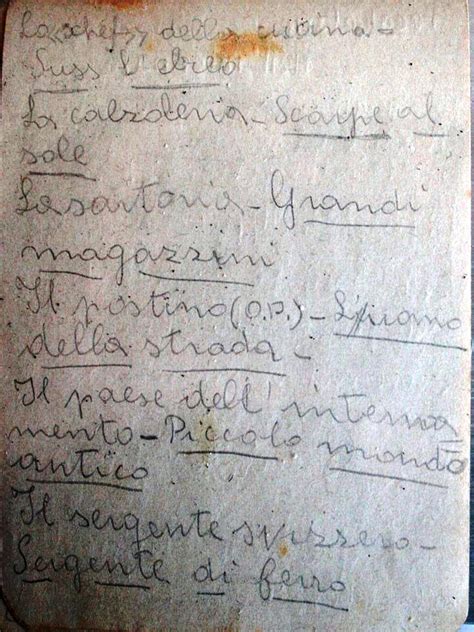 La «chef» della cucina -
Suss l'ebreo
La calzoleria - Scarpe al
sole
La sartoria - Grandi
magazzini
Il postino (O.P.) - L'uomo
della strada -
Il paese dell'interna
mento - Piccolo mondo
antico
Il sergente svizzero -
Sergente di ferro